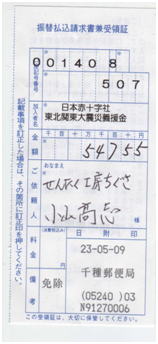 振替払込請求書兼受領証
001408
507
加入者名
日本赤十字社
東北関東大震災義援金
金額
千百十万千百十円
54755
おなまえ
ご依頼人
せんたく工房ちぐさ
小山高志
料金
(消費税込み)
円
日附印
23-05-09
備考
免除
千種郵便局
(05240)03
N91270006
記載事項を訂正した場合は、その箇所に訂正印を押してください。
この受領証は、大切に保管してください。